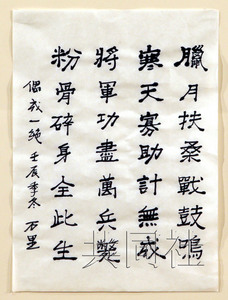 臘月扶桑戰鼓鳴
寒天寡助計無成
將軍功盡萬兵斃
粉骨碎身全此生
偶成一絶 壬辰季冬 石墨
共同社